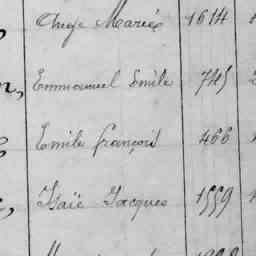 Ange Marie 1614
Emmanuel Emile 745
Emile françois 466
Isaïe Jacques 1559